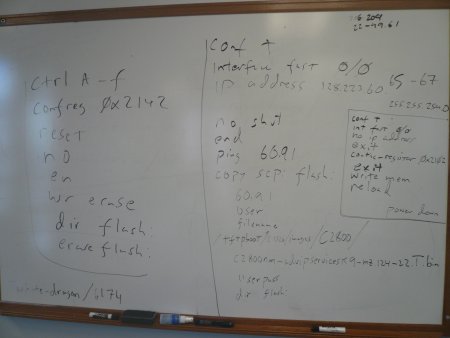 Ctrl A-f
confreg 0x2142
reset
no
en
wr erase
dir flash:
erase flash:
conf t
interface fast 0/0
ip address 128.223.60
65-67
255.255.254.0
no shut
end
ping 60.91
copy scp: flash:
60.91
user
filename
/c2800
c2800nm-advipservicesk9-mz.124-22.T.bin
userpass
dir flash:
conf t
int fast 0/0
no ip address
exit
config-register 0x2102
exit
write mem
reload
power down